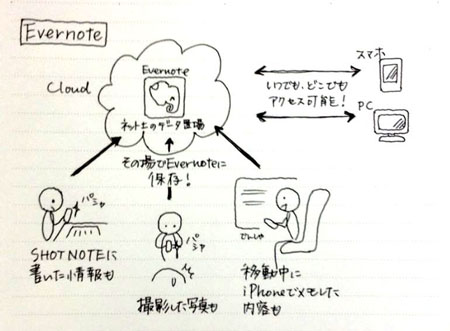 Evernote
Cloud
Evernote
ネット上のデータ置場
スマホ
いつでも、どこでも
アクセス可能!
PC
その場でEvernoteに
保存!
パシャ
SHOTNOTEに
書いた情報も
パシャ
撮影した写真も
でんしゃ
移動中に
iPhoneでメモした
内容も